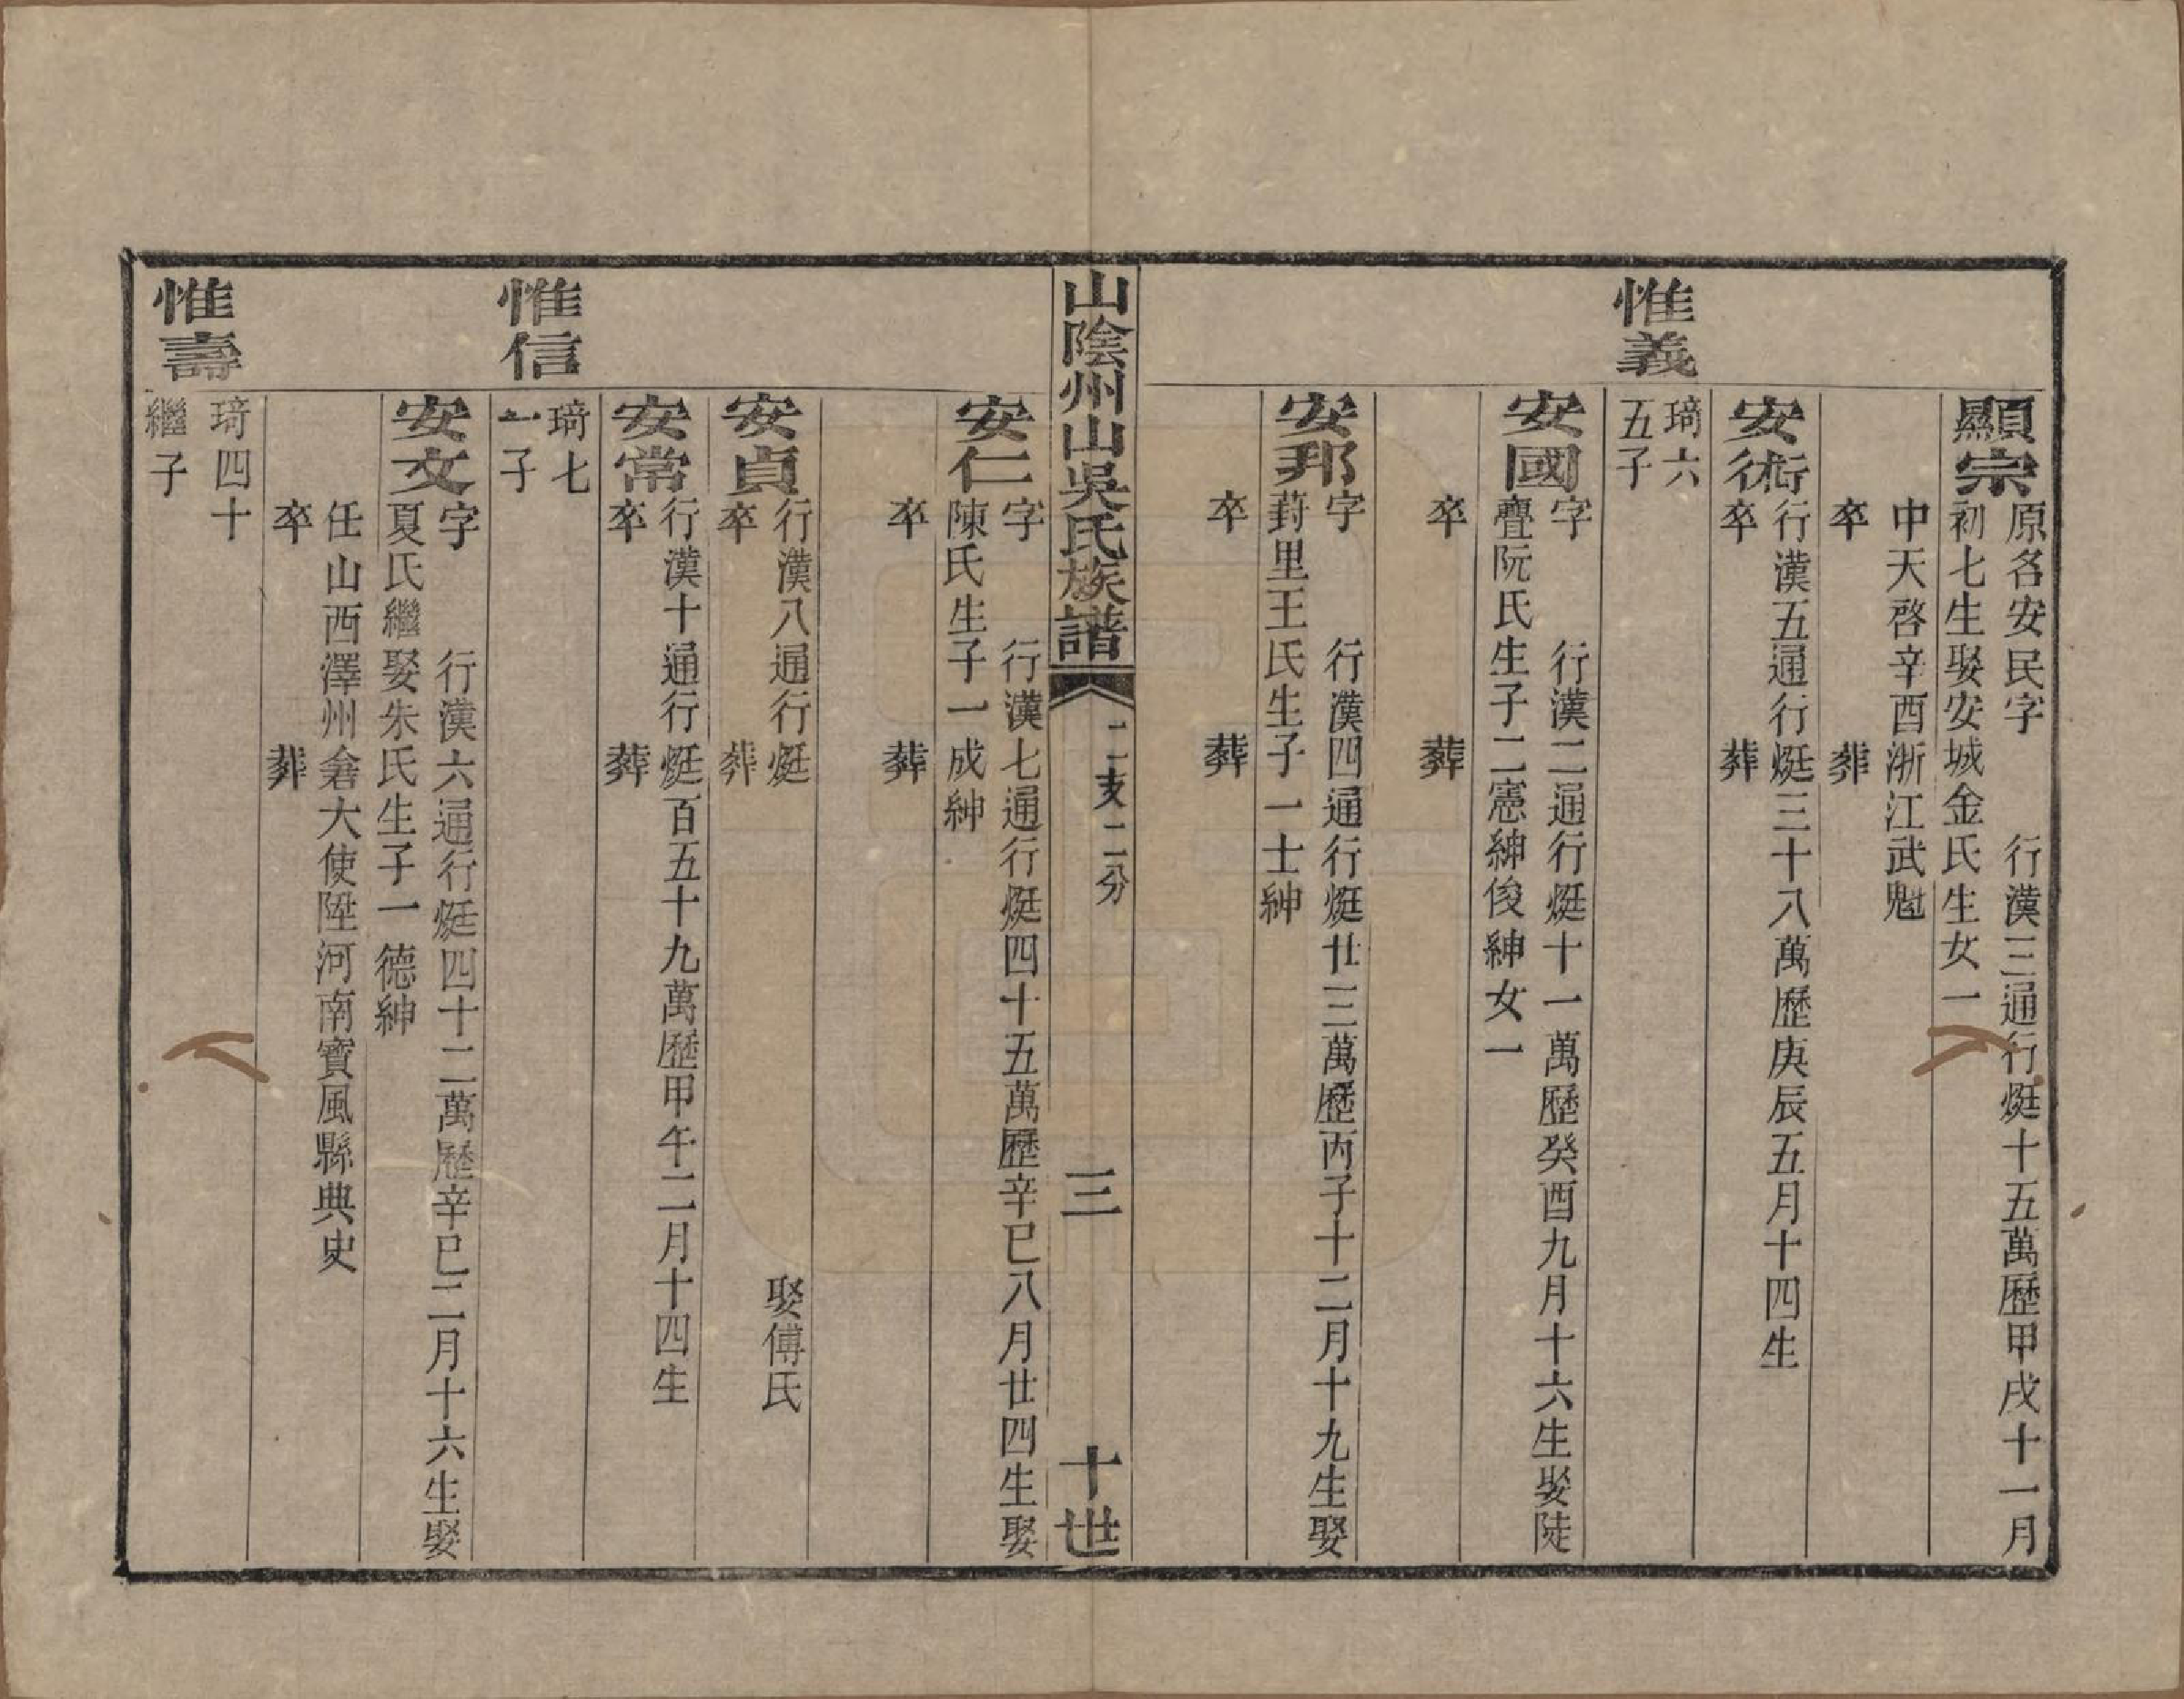 顯宗
原名安民字　行漢三通行烶十五萬歷甲戌十一月
初七生娶安城金氏生女一
中天啓辛酉浙江武魁
卒　葬
安術
行漢五通行烶三十八萬歷庚辰五月十四生
卒　葬
惟義
琦六
五子
安國
字　行漢二通行烶十一萬歷癸酉九月十六生娶陡
亹阮氏生子二憲紳俊紳女一
卒　葬
安邦
字　行漢四通行烶廿三萬歷丙子十二月十九生娶
葑里王氏生子一士紳
卒　葬
山陰州山吳氏族譜
二支二分
三
十世
安仁
字　行漢七通行烶四十五萬歷辛巳八月廿四生娶
陳氏生子一成紳
卒　葬
安貞
行漢八通行烶　娶傅氏
卒　葬
安常
行漢十通行烶百五十九萬歷甲午二月十四生
卒　葬
惟信
琦七
一子
安文
字　行漢六通行烶四十二萬歷辛巳二月十六生娶
夏氏繼娶朱氏生子一德紳
任山西澤州倉大使陞河南寶風縣典史
卒　葬
惟壽
琦四十
繼子